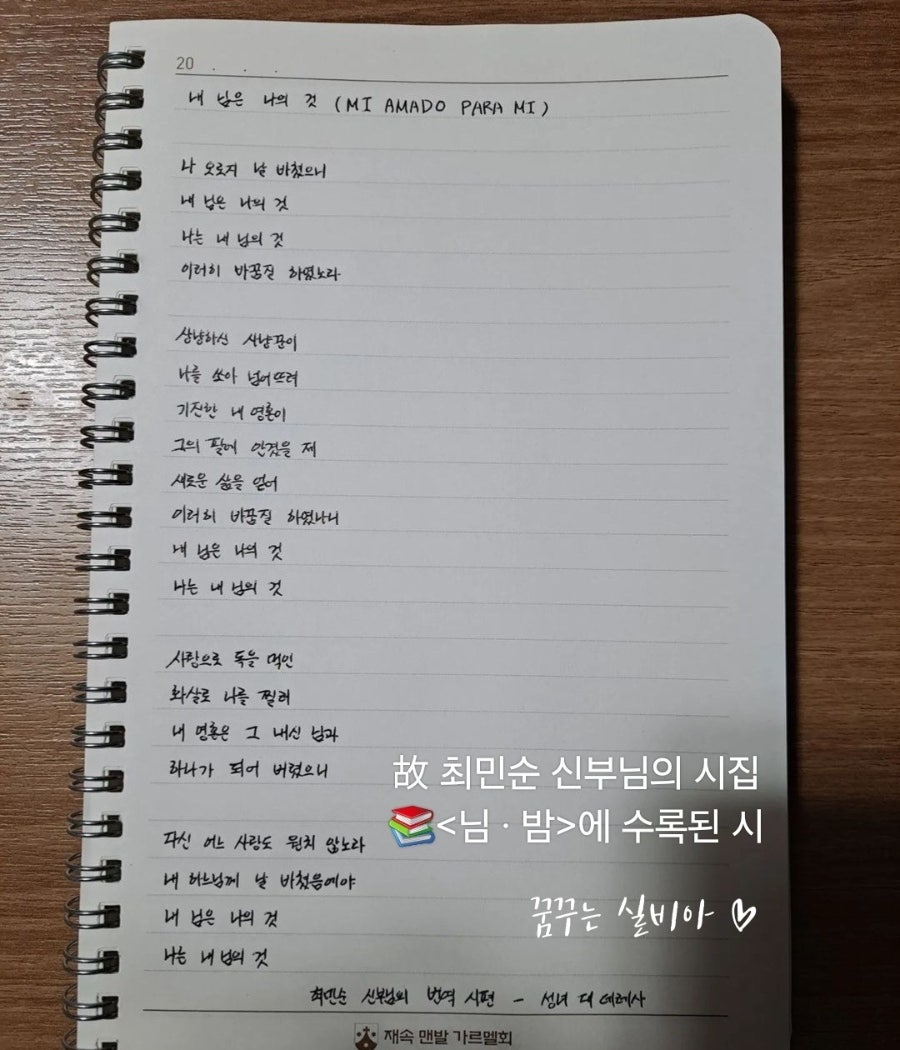 20 . . .
내 님은 나의 것 (MI AMADO PARA MI)
나 오로지 날 바쳤으니
내 님은 나의 것
나는 내 님의 것
이러히 바꿈질 하였노라
상냥하신 사냥꾼이
나를 쏘아 넘어뜨려
기진한 내 영혼이
그의 팔에 안겼을 제
새로운 삶을 얻어
이러히 바꿈질 하였나니
내 님은 나의 것
나는 내 님의 것
사랑으로 독을 먹인
화살로 나를 찔러
내 영혼은 그 내신 님과
하나가 되어 버렸으니
故 최민순 신부님의 시집
<님 · 밤>에 수록된 시
다신 어느 사랑도 원치 않노라
내 하느님께 날 바쳤음에야
내 님은 나의 것
꿈꾸는 실비아
나는 내 님의 것
최민순 신부님의 번역 시편 - 성녀 대 데레사
재속 맨발 가르멜회